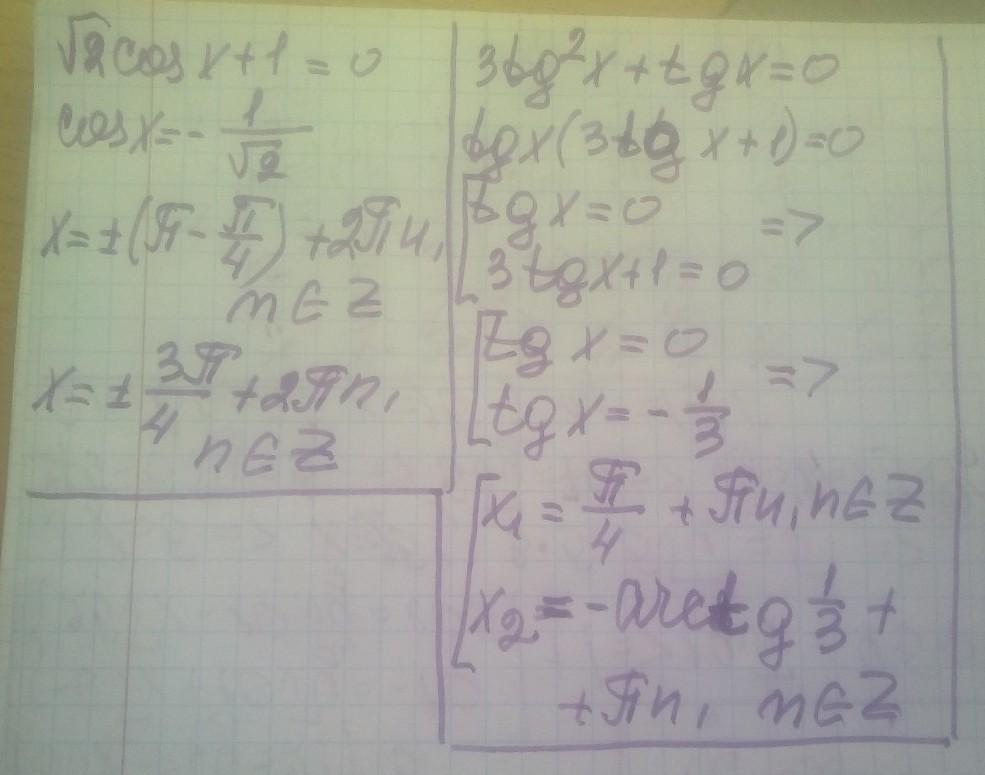 √2 cos x + 1 = 0
cos x = - 1/√2
x = ±(π - π/4) + 2πn,
n ∈ Z
x = ± 3π/4 + 2πn,
n ∈ Z
3tg²x + tg x = 0
tg x(3tg x + 1) = 0
[ tg x = 0
3tg x + 1 = 0 =>
[ tg x = 0
tg x = - 1/3 =>
[ x₁ = π/4 + πn, n ∈ Z
x₂ = - arctg 1/3 +
+ πn, n ∈ Z